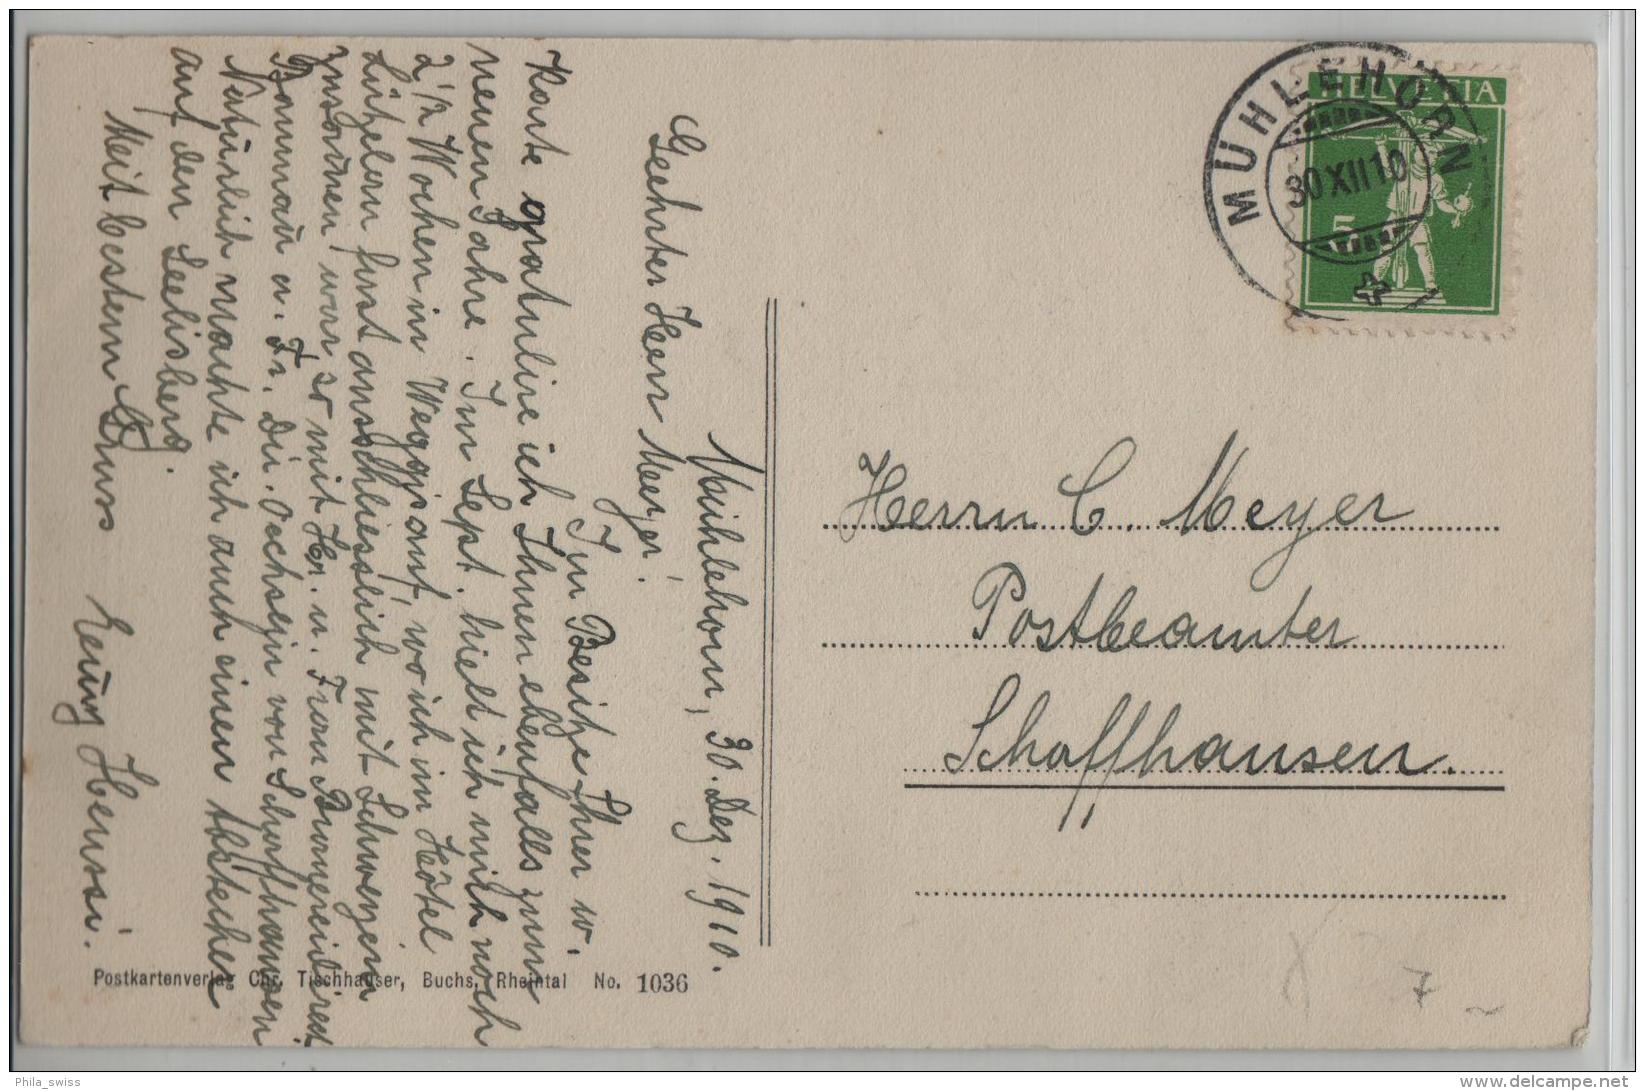 Mühlehorn, 30. Dez. 1910.
Geehrter Herr Meyer!
Im Besitze Ihrer w.
Karte gratulire ich Ihnen ebenfalls zum
neuen Jahre. Im Sept. hielt ich mich noch
2 1/2 Wochen in Weggis auf, wo ich im Hôtel
Lützelau fast ausschliesslich mit Schweizern
zusamen war so mit Hr. u. Frau
u. Fr. Dir. Oechslin von Schaffhausen
Natürlich machte ich auch einen Abstecher
auf den Seelisberg.
Mit bestem Gruss
Heussi.
Herrn C. Meyer
Postbeamter
Schaffhausen.
HELVETIA
5
MÜHLEHORN
30 XII 10
Postkartenverlag Chr. Tischhauser, Buchs, Rheintal No. 1036
7
Phila_swiss
delcampe.net